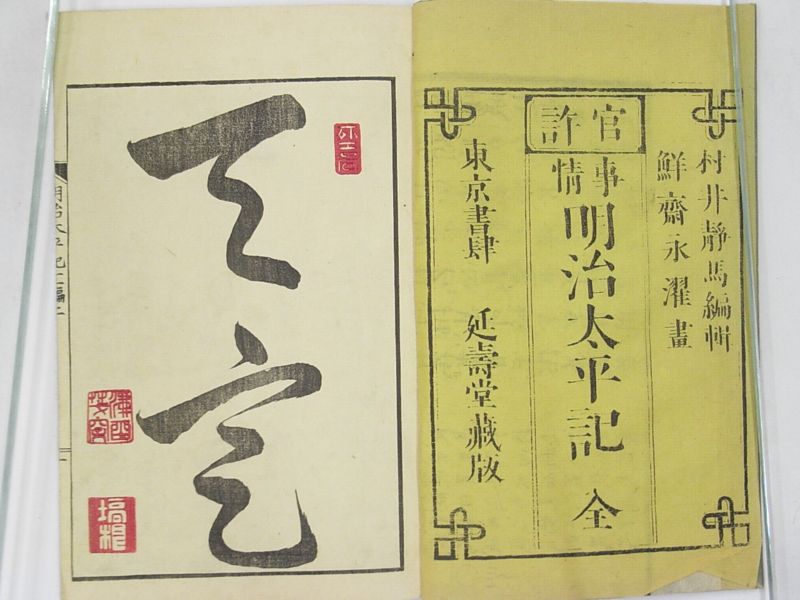 村井靜馬編輯
鮮齋永濯畫
官許
事情
明治太平記 全
東京書肆 延壽堂藏版
天定
明治太平記